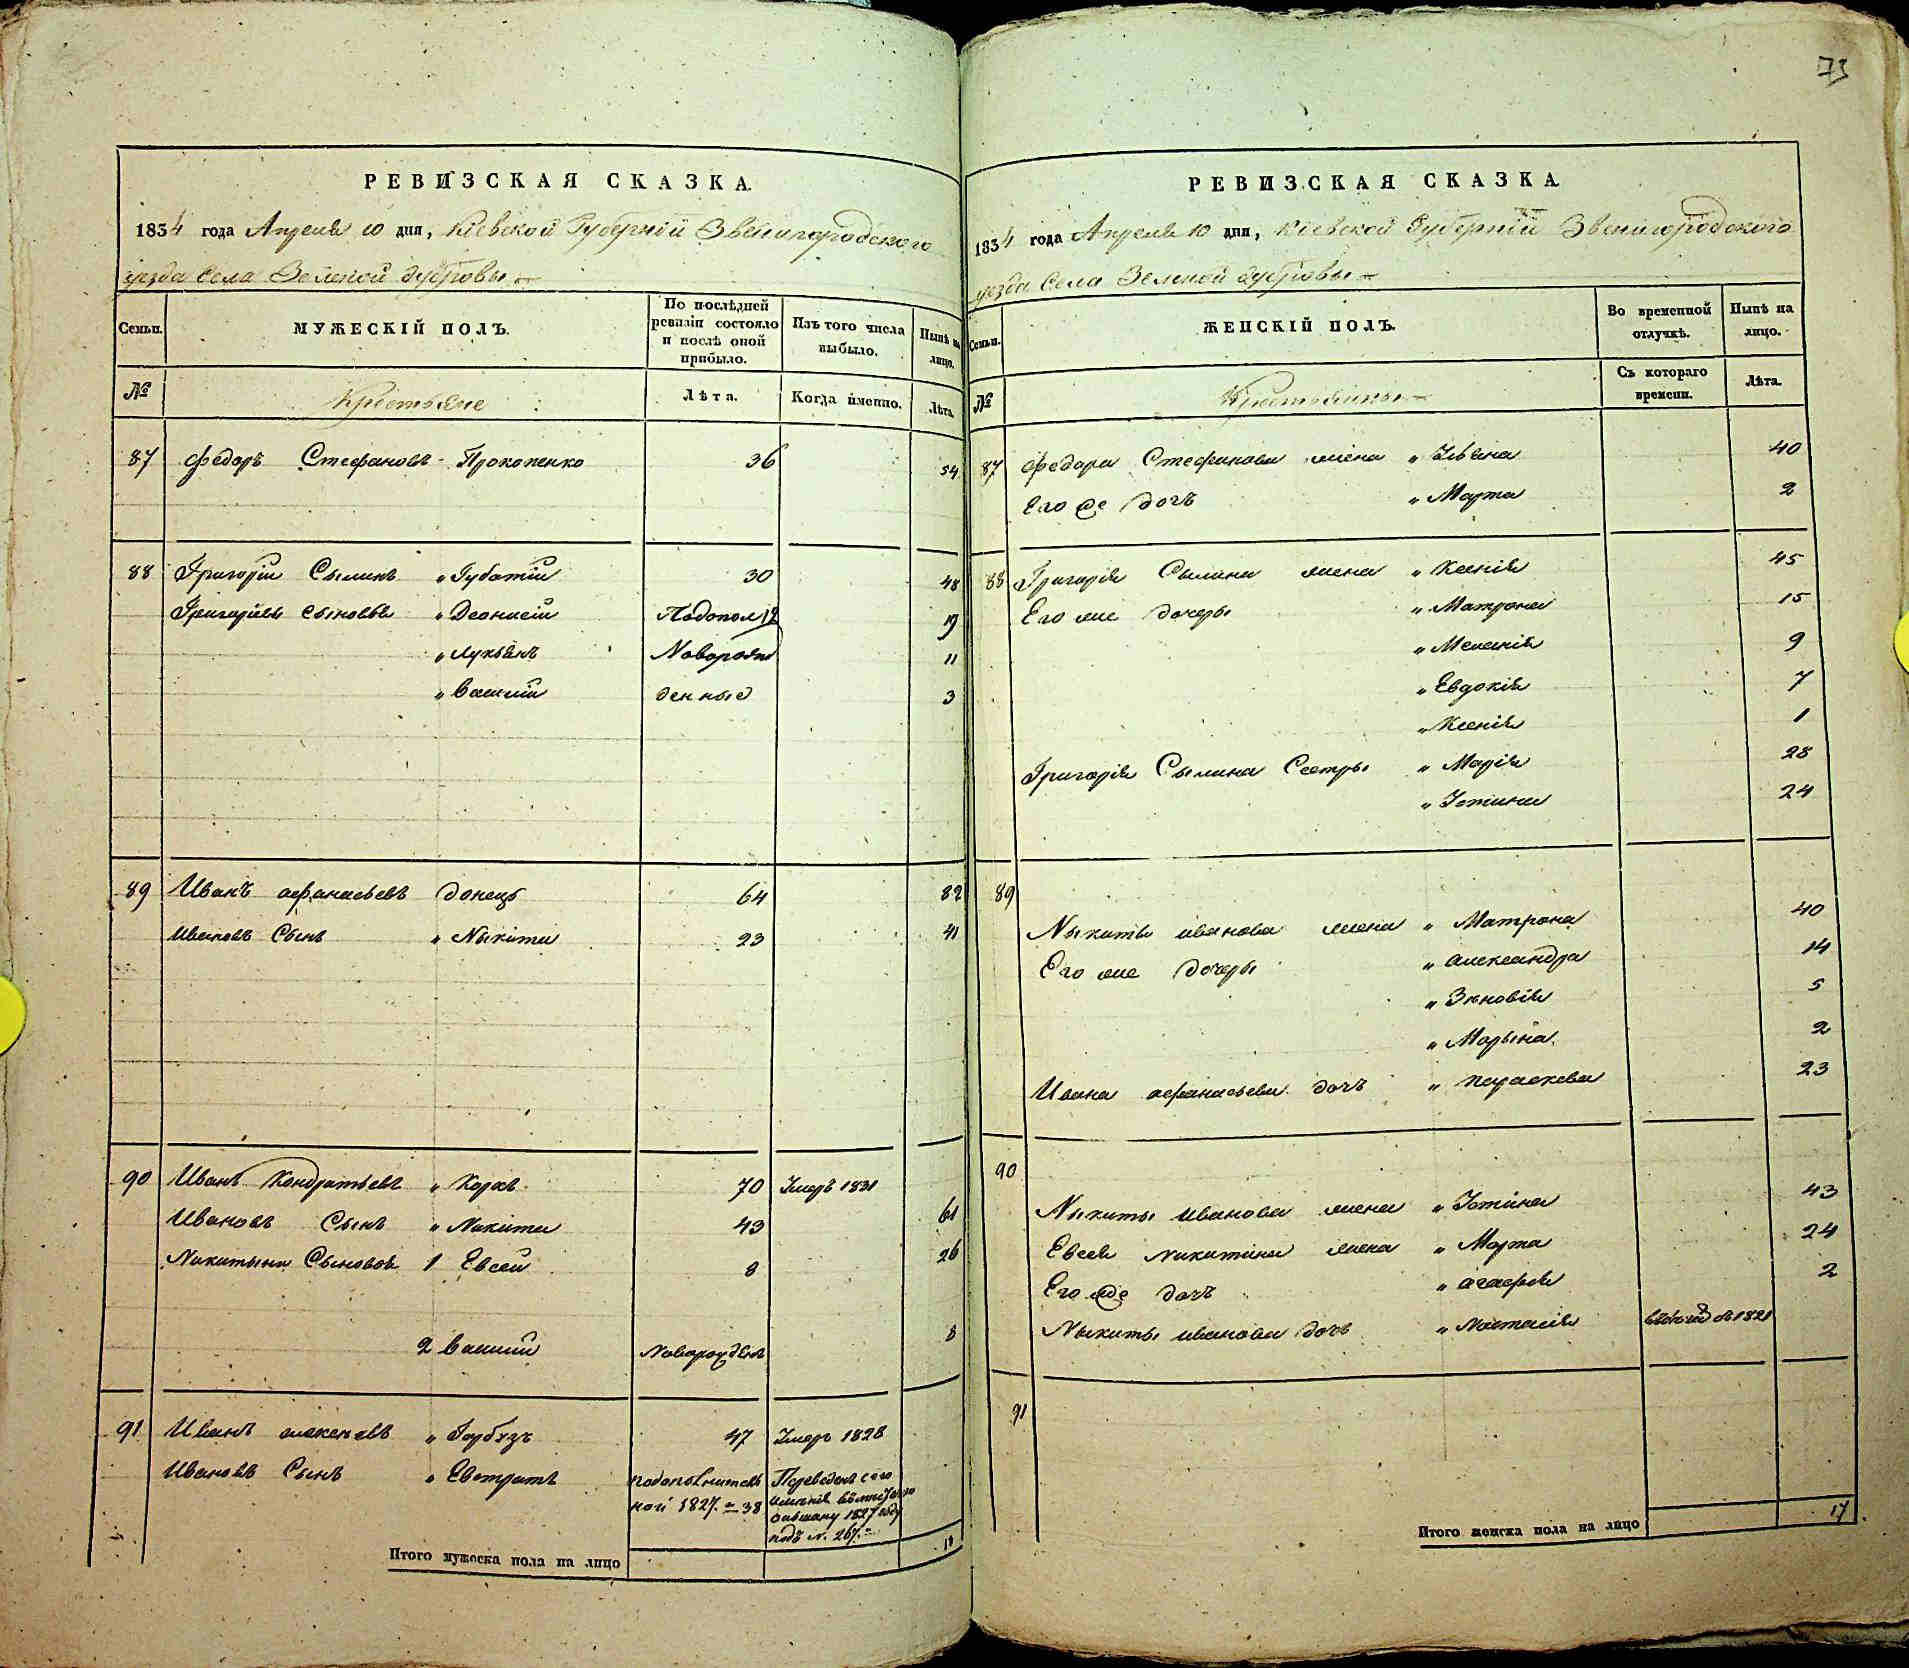 73
РЕВИЗСКАЯ СКАЗКА.
1834 года Апреля 10 дня, Кіевской Губерніи Звенигородского
уезда Села Зеленой Дубровы
Семьи. МУЖЕСКІЙ ПОЛЪ. По послѣдней ревизіи состояло и послѣ оной прибыло. Изъ того числа выбыло. Нынѣ на лицо.
№ Крестьяне Лѣта. Когда именно. Лѣта.
87 Федоръ Стефановъ Прокопенко 36 54
88 Григорій Сылинъ „ Губатій 30 48
Григоріевы Сыновья „ Деонисій 19
„ Лукьянъ Новорож 11
„ Василій денные 3
89 Иванъ афанасьевъ Донецъ 64 82
Ивановъ Сынъ „ Никита 23 41
90 Иванъ Кондратьевъ „ Коржъ 70 Умеръ 1831
Ивановъ Сынъ „ Никита 43 61
Никитины Сыновья 1 Евсей 8 26
2 Василій Новорожденъ 8
91 Иванъ алексѣевъ „ Гарбузъ 47 Умеръ 1828
Ивановъ Сынъ „ Евстратъ
1827 38 1827
подъ №. 267
Итого мужеска пола на лицо 10
РЕВИЗСКАЯ СКАЗКА
1834 года Апреля 10 дня, Кіевской Губерніи Звенигородского
уезда Села Зеленой Дубровы
Семьи. ЖЕНСКІЙ ПОЛЪ. Во временной отлучкѣ. Нынѣ на лицо.
№ Крестьянки Съ котораго времени. Лѣта.
87 Федора Стефанова жена „ Ульяна 40
Его же дочь „ Марта 2
88 Григорія Сылина жена „ Ксенія 45
Его же дочеры „ Матрона 15
„ Меланія 9
„ Евдокія 7
„ Ксенія 1
Григорія Сылина Сестры „ Марія 28
„ Устина 24
89
Никиты иванова жена „ Матрона 40
Его же дочеры „ александра 14
„ Зѣновія 5
„ Марына 2
Ивана афанасьева дочь „ Параскева 23
90
Никиты Иванова жена „ Устина 43
Евсея Никитина жена „ Марта 24
Его же дочь „ агафія 2
Никиты иванова дочь „ Настасія 1821
91
Итого женска пола на лицо 17